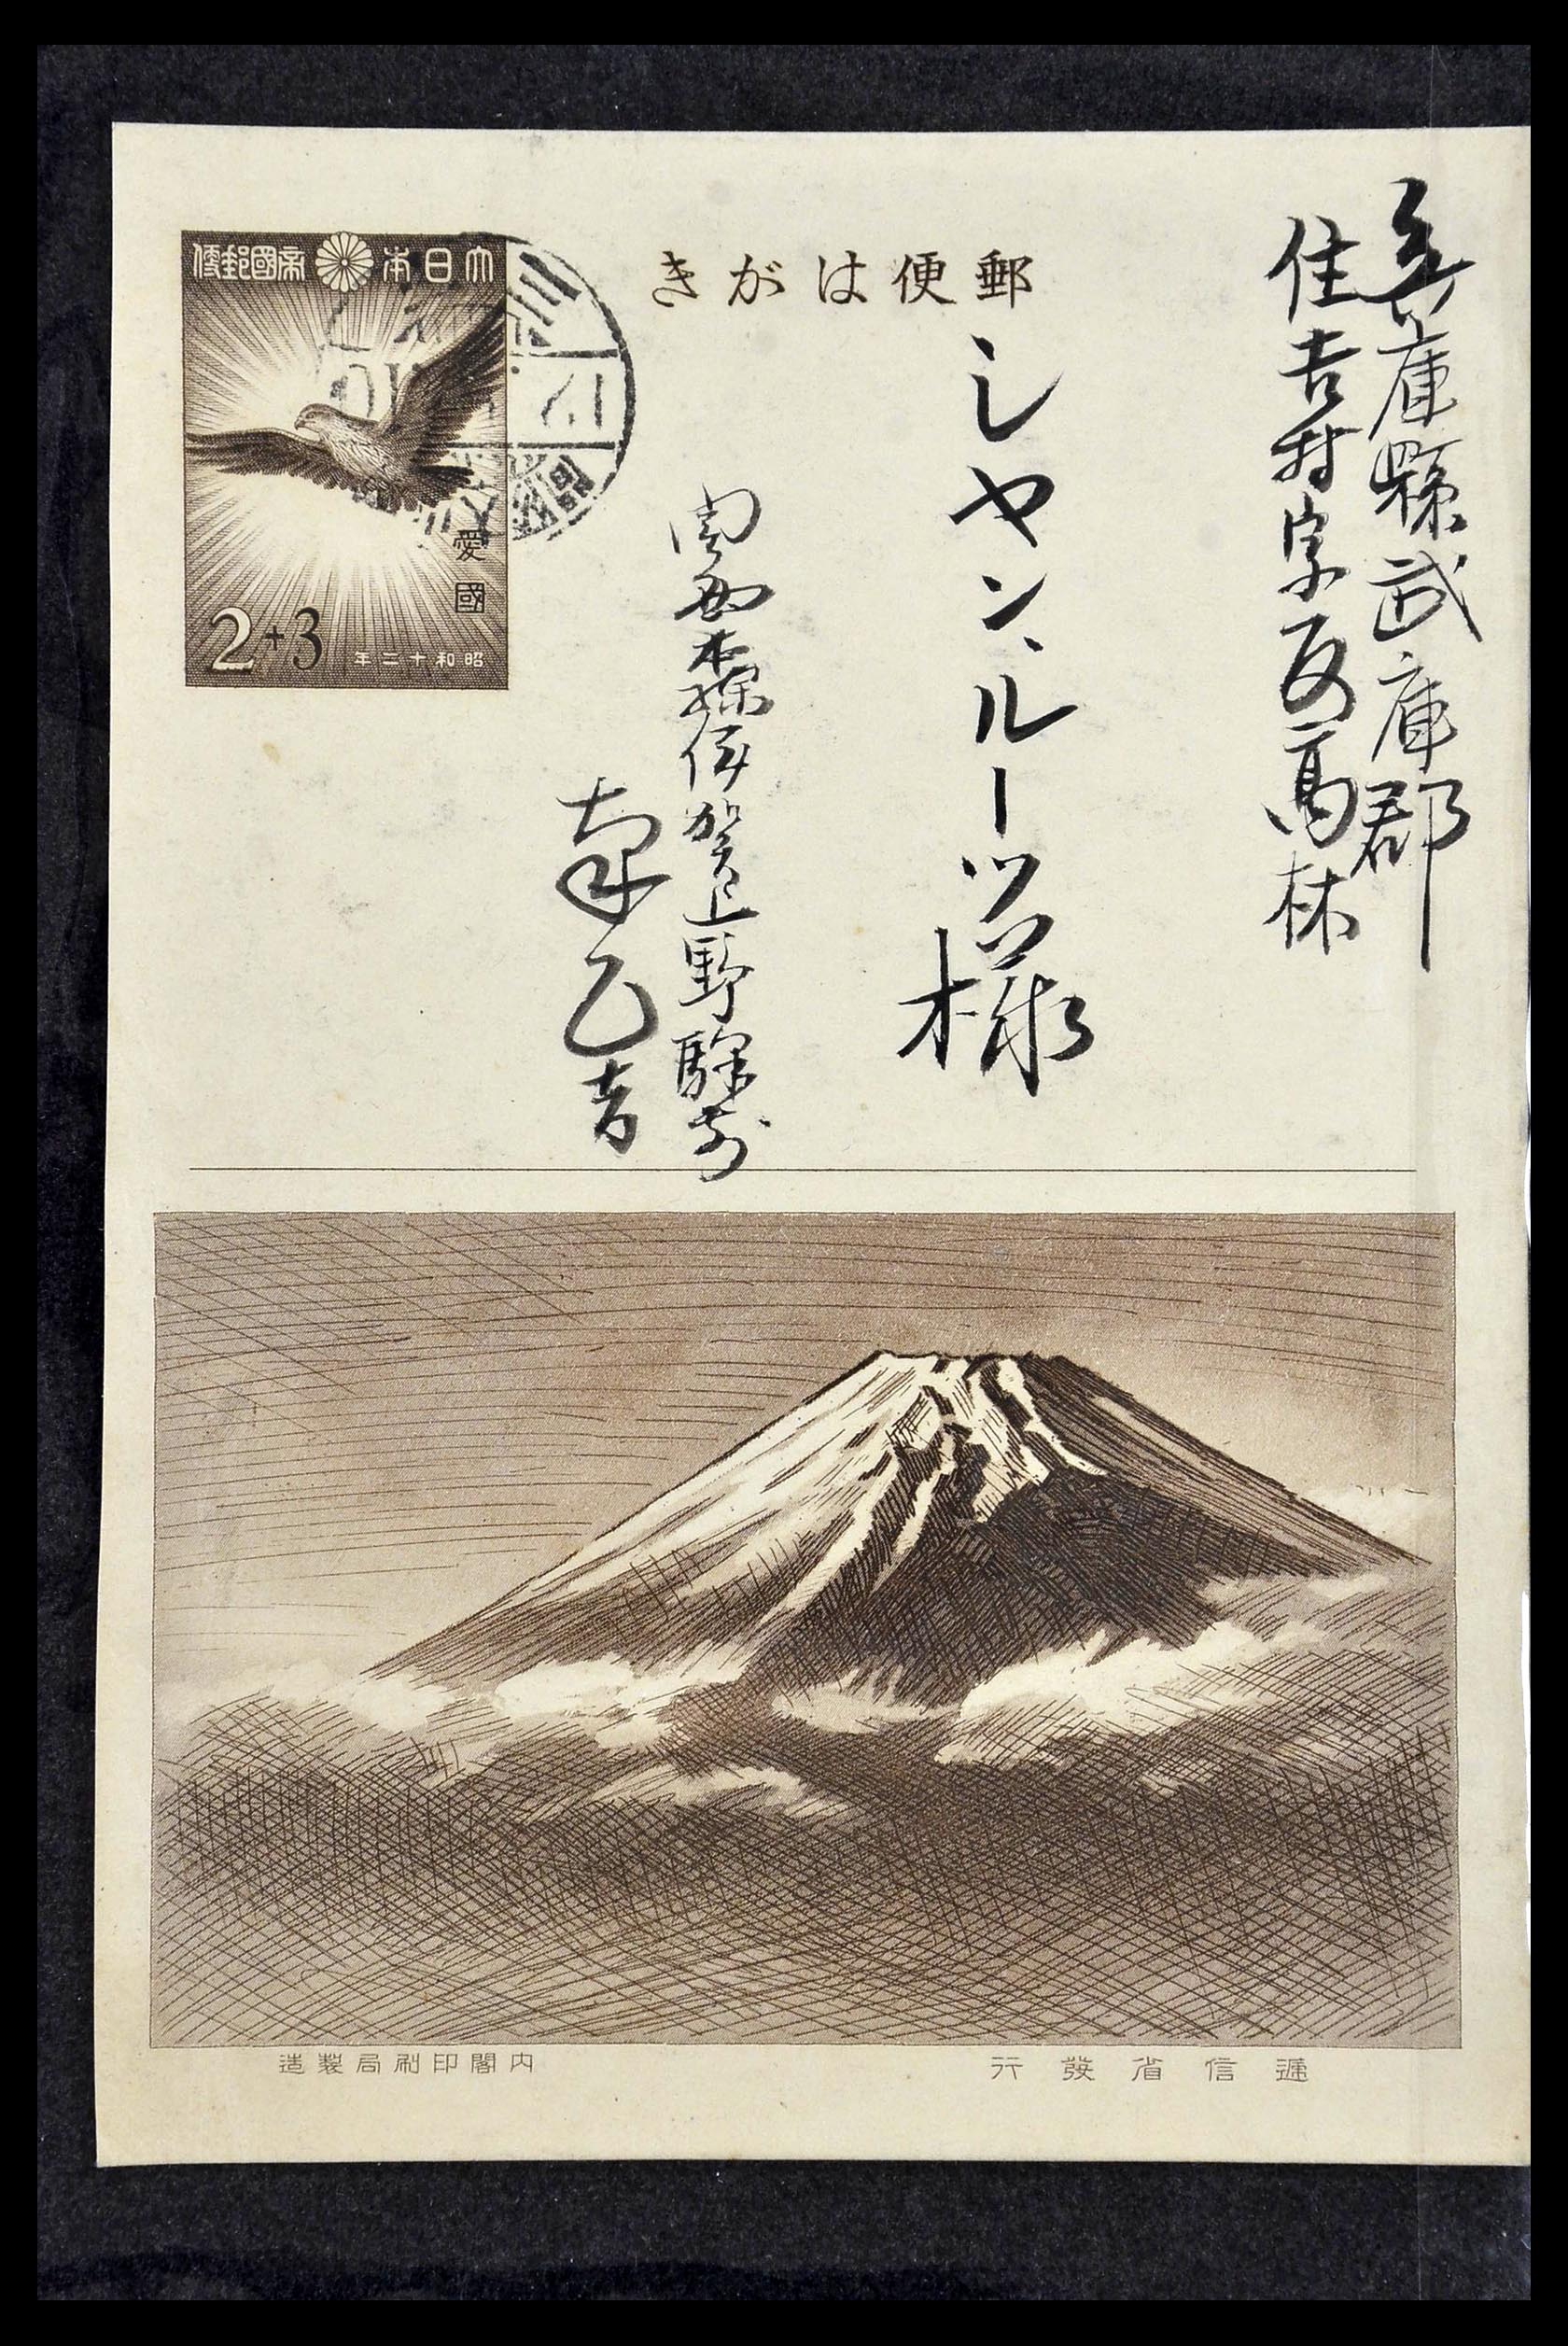 大日本帝國郵便
愛國
2+3
昭和十二年
郵便はがき
兵庫縣武庫郡
住吉村字反高林
シャン、ルーツ様
関西本線伊賀上野駅前
乙吉
逓信省發行
内閣印刷局製造